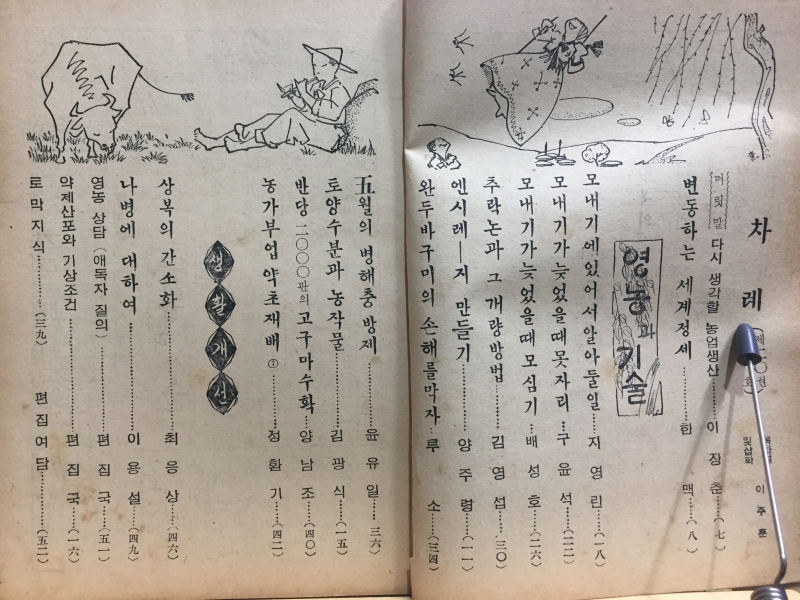 차례
머릿말 다시 생각할 농업생산……이장춘……(七)
변동하는 세계정세……한맥……(八)
영농과 기술
모내기에있어서알아둘일……지영린……(一八)
모내기가늦었을때못자리……구윤석……(二二)
모내기가늦었을때모심기……배성호……(二六)
추락논과 그 개량방법……김영섭……(三〇)
엔시레ー지 만들기……양주령……(一一)
완두바구미의 손해를막자……루소……(三四)
五월의 병해충 방제……윤유일……(三六)
토양수분과 농작물……김광식……(一五)
반당 二〇〇〇판의 고구마수확……양남조……(四〇)
농가부업 약초재배①……정환기……(四二)
생활개선
상복의 간소화……최응상……(四六)
나병에 대하여……이용설……(四九)
영농 상담 (애독자 질의)……편집국……(五一)
약제산포와 기상조건……편집국……(一六)
토막지식……(三九)
편집여담……(五二)
및삽화 이주훈